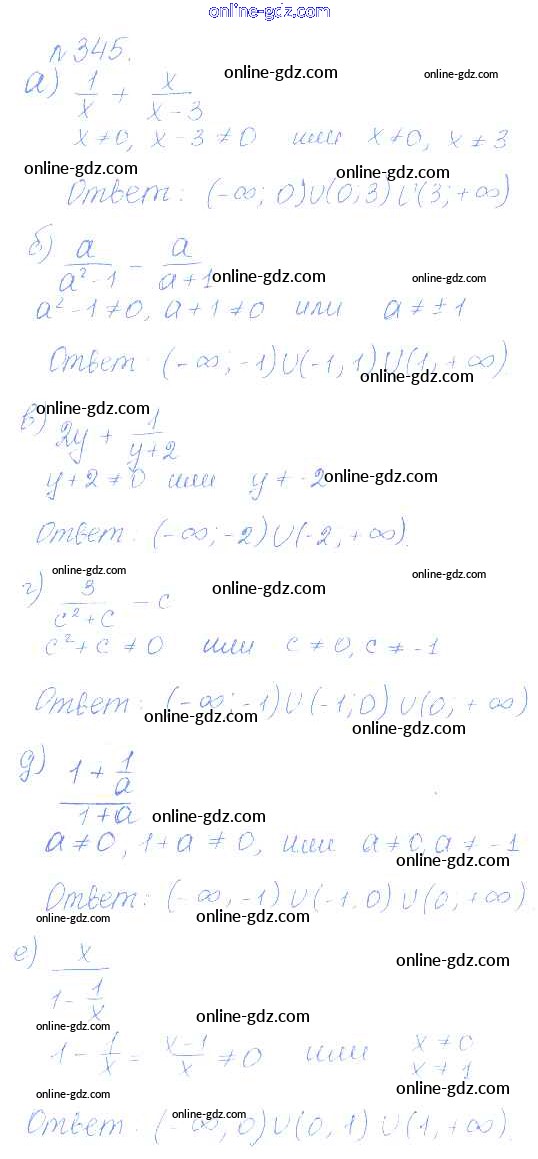 online-gdz.com
№ 345.
а) 1/x + x/(x - 3)
online-gdz.com online-gdz.com
x ≠ 0, x - 3 ≠ 0 или x ≠ 0, x ≠ 3
online-gdz.com online-gdz.com
Ответ: (-∞; 0)∪(0; 3)∪(3; +∞)
б) a/(a² - 1) - a/(a + 1)
online-gdz.com online-gdz.com
a² - 1 ≠ 0, a + 1 ≠ 0 или a ≠ ± 1
Ответ: (-∞; -1)∪(-1, 1)∪(1, +∞)
online-gdz.com
online-gdz.com
в) 2y + 1/(y + 2)
y + 2 ≠ 0 или y ≠ -2
online-gdz.com
Ответ: (-∞; -2)∪(-2; +∞).
online-gdz.com online-gdz.com online-gdz.com
г) 3/(c² + c) - c
c² + c ≠ 0 или c ≠ 0, c ≠ -1
Ответ: (-∞; -1)∪(-1; 0)∪(0; +∞)
online-gdz.com online-gdz.com
д) (1 + 1/a)/(1 + a)
online-gdz.com
a ≠ 0, 1 + a ≠ 0, или a ≠ 0, a ≠ -1
online-gdz.com
Ответ: (-∞, -1)∪(-1, 0)∪(0, +∞)
online-gdz.com online-gdz.com online-gdz.com
е) x/(1 - 1/x)
online-gdz.com
online-gdz.com online-gdz.com
1 - 1/x = (x - 1)/x ≠ 0 или x ≠ 0
x ≠ 1
online-gdz.com online-gdz.com
online-gdz.com
Ответ: (-∞, 0)∪(0, 1)∪(1, +∞).